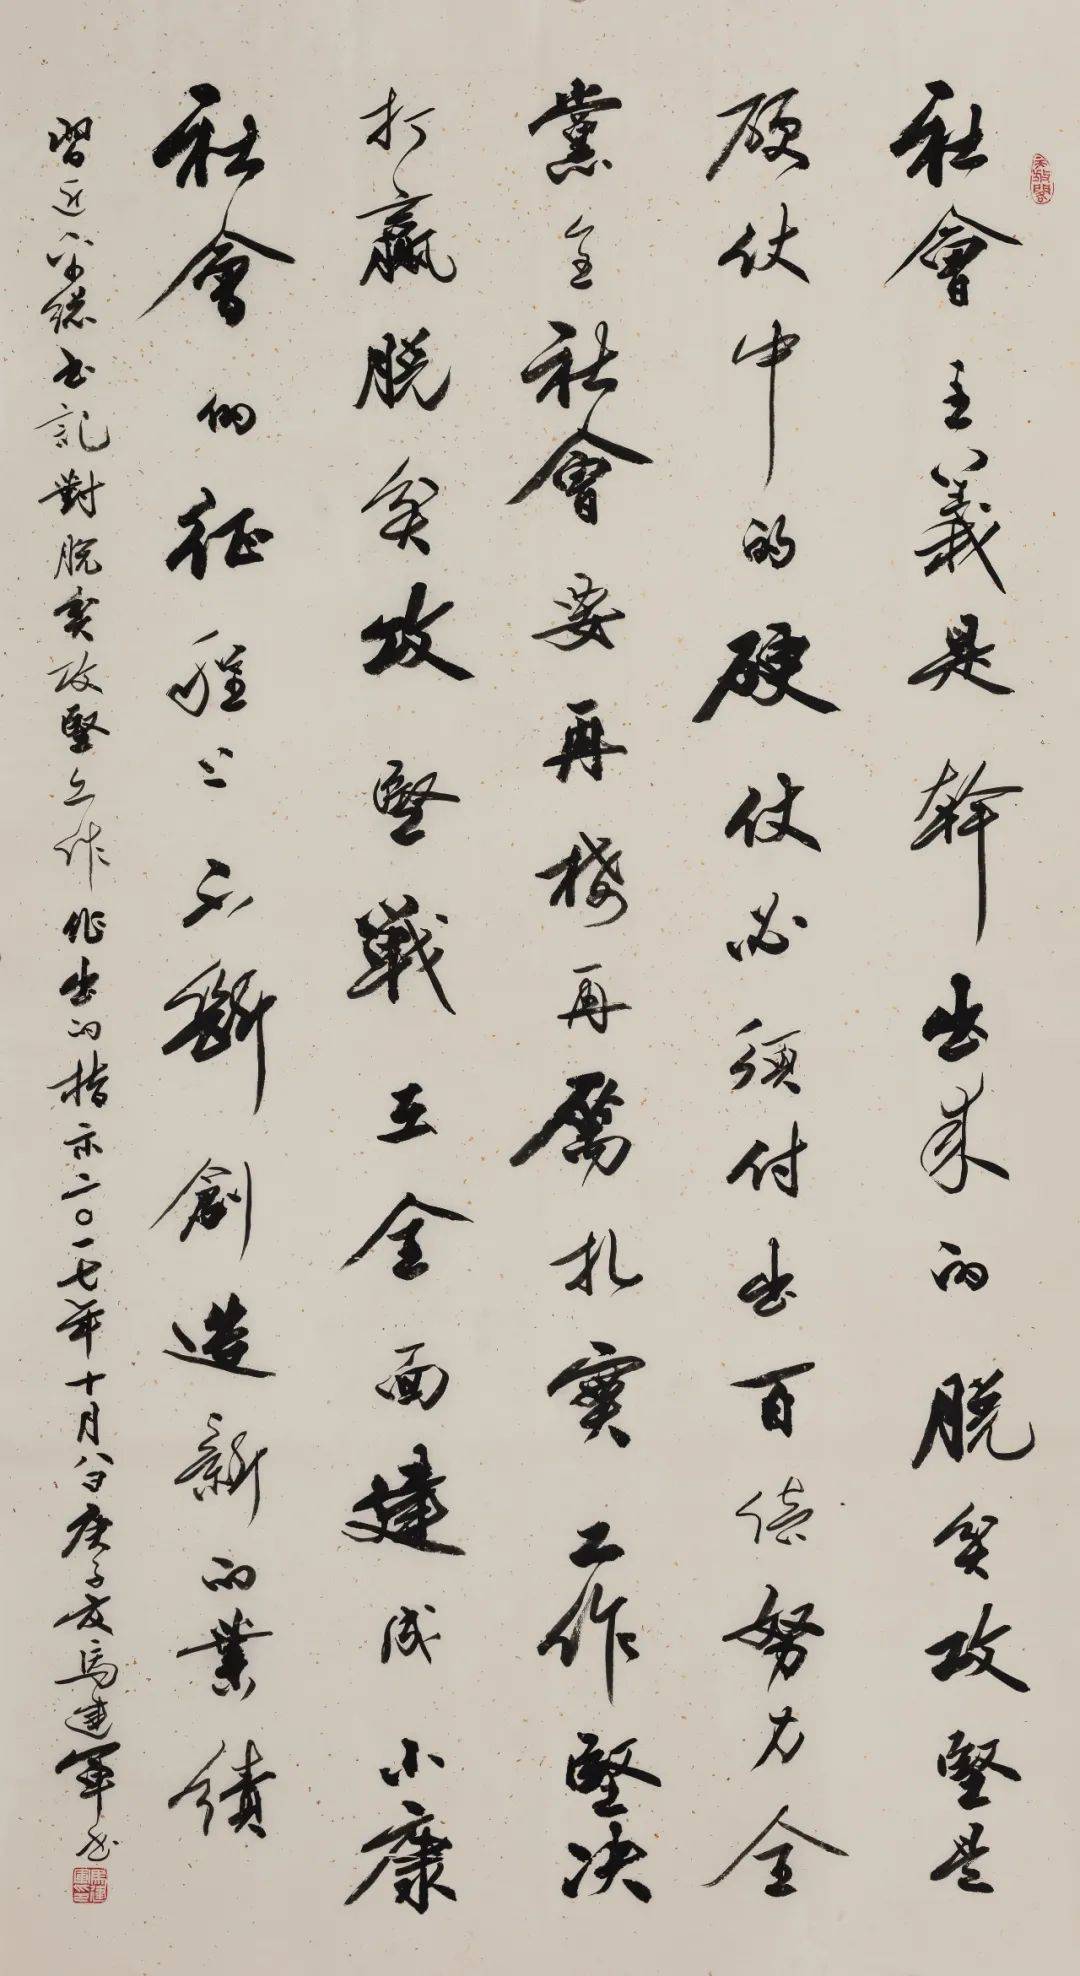 社會主義是幹出来的脱貧攻堅是
硬仗中的硬仗必須付出百倍努力全
黨全社會要再接再厲扎實工作堅决
打贏脱貧攻堅戰在全面建成小康
社會的征程上不斷創造新的業績
習近平總書記對脱貧攻堅工作作出的指示二〇一七年十月八日庚子夏馬建軍書